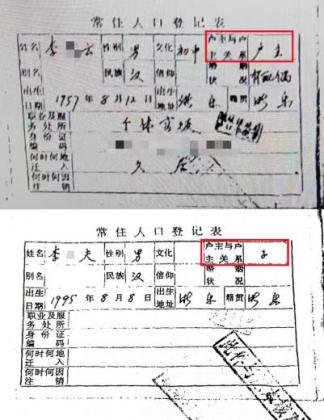 常住人口登记表
姓名 李 云 性别 男 文化 初中 户主与户主关系 户主
别名 民族 汉 信仰 婚姻状况 有配偶
出生日期 1957年8月12日 出生地址 乐 籍贯 乐
职业及服务处所
身份证编码
何时何地迁入 久居
何时何因注销
常住人口登记表
姓名 李 夫 性别 男 文化 户主与户主关系 子
别名 民族 汉 信仰 婚姻状况
出生日期 1995年8月8日 出生地址 乐 籍贯 乐
职业及服务处所
身份证编码
何时何地迁入
何时何因注销